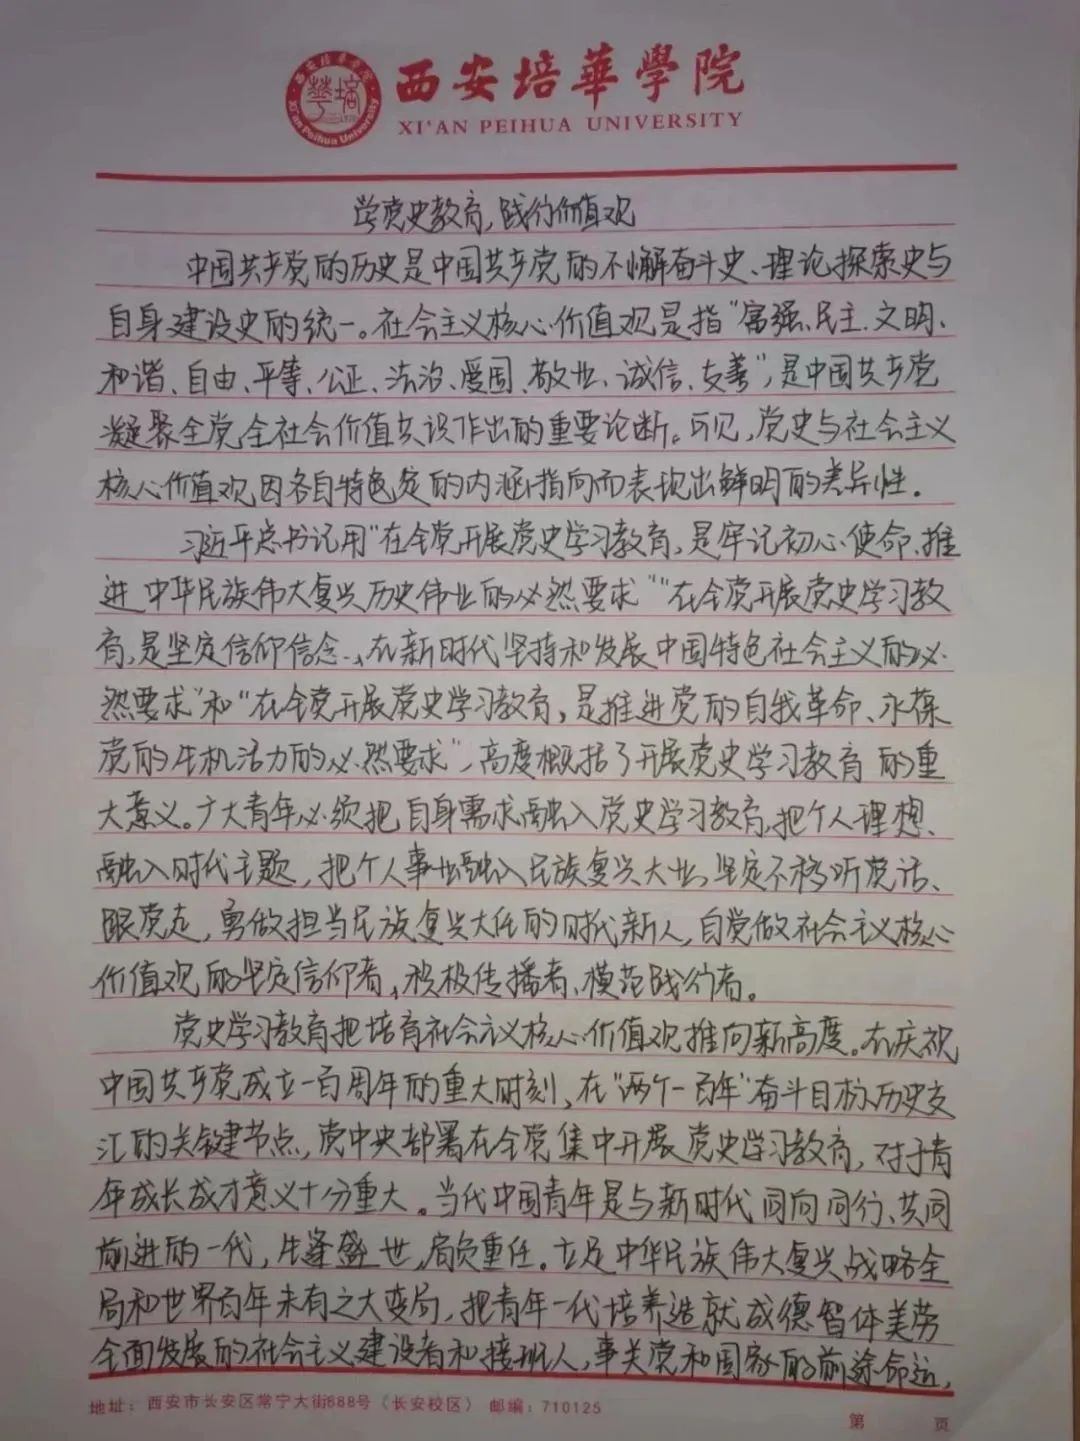 西安培華學院
XI'AN PEIHUA UNIVERSITY
学党史教育,践行价值观
中国共产党的历史是中国共产党的不懈奋斗史、理论探索史与
自身建设史的统一。社会主义核心价值观是指"富强、民主、文明、
和谐、自由、平等、公正、法治、爱国、敬业、诚信、友善",是中国共产党
凝聚全党全社会价值共识作出的重要论断。可见,党史与社会主义
核心价值观因各自特色定的内涵指向而表现出鲜明的差异性。
习近平总书记用"在全党开展党史学习教育,是牢记初心使命、推
进中华民族伟大复兴历史伟业的必然要求""在全党开展党史学习教
育,是坚定信仰信念、在新时代坚持和发展中国特色社会主义的必
然要求"和"在全党开展党史学习教育,是推进党的自我革命、永葆
党的生机活力的必然要求",高度概括了开展党史学习教育的重
大意义。广大青年必须把自身需求融入党史学习教育,把个人理想、
融入时代主题,把个人事业融入民族复兴大业,坚定不移听党话、
跟党走,勇做担当民族复兴大任的时代新人,自觉做社会主义核心
价值观的坚定信仰者、积极传播者、模范践行者。
党史学习教育把培育社会主义核心价值观推向新高度。在庆祝
中国共产党成立一百周年的重大时刻,在"两个一百年"奋斗目标历史交
汇的关键节点,党中央部署在全党集中开展党史学习教育,对于青
年成长成才意义十分重大。当代中国青年是与新时代同向同行、共同
前进的一代,生逢盛世,肩负重任。立足中华民族伟大复兴战略全
局和世界百年未有之大变局,把青年一代培养造就成德智体美劳
全面发展的社会主义建设者和接班人,事关党和国家的前途命运,
地址:西安市长安区常宁大街888号(长安校区) 邮编:710125
第 页